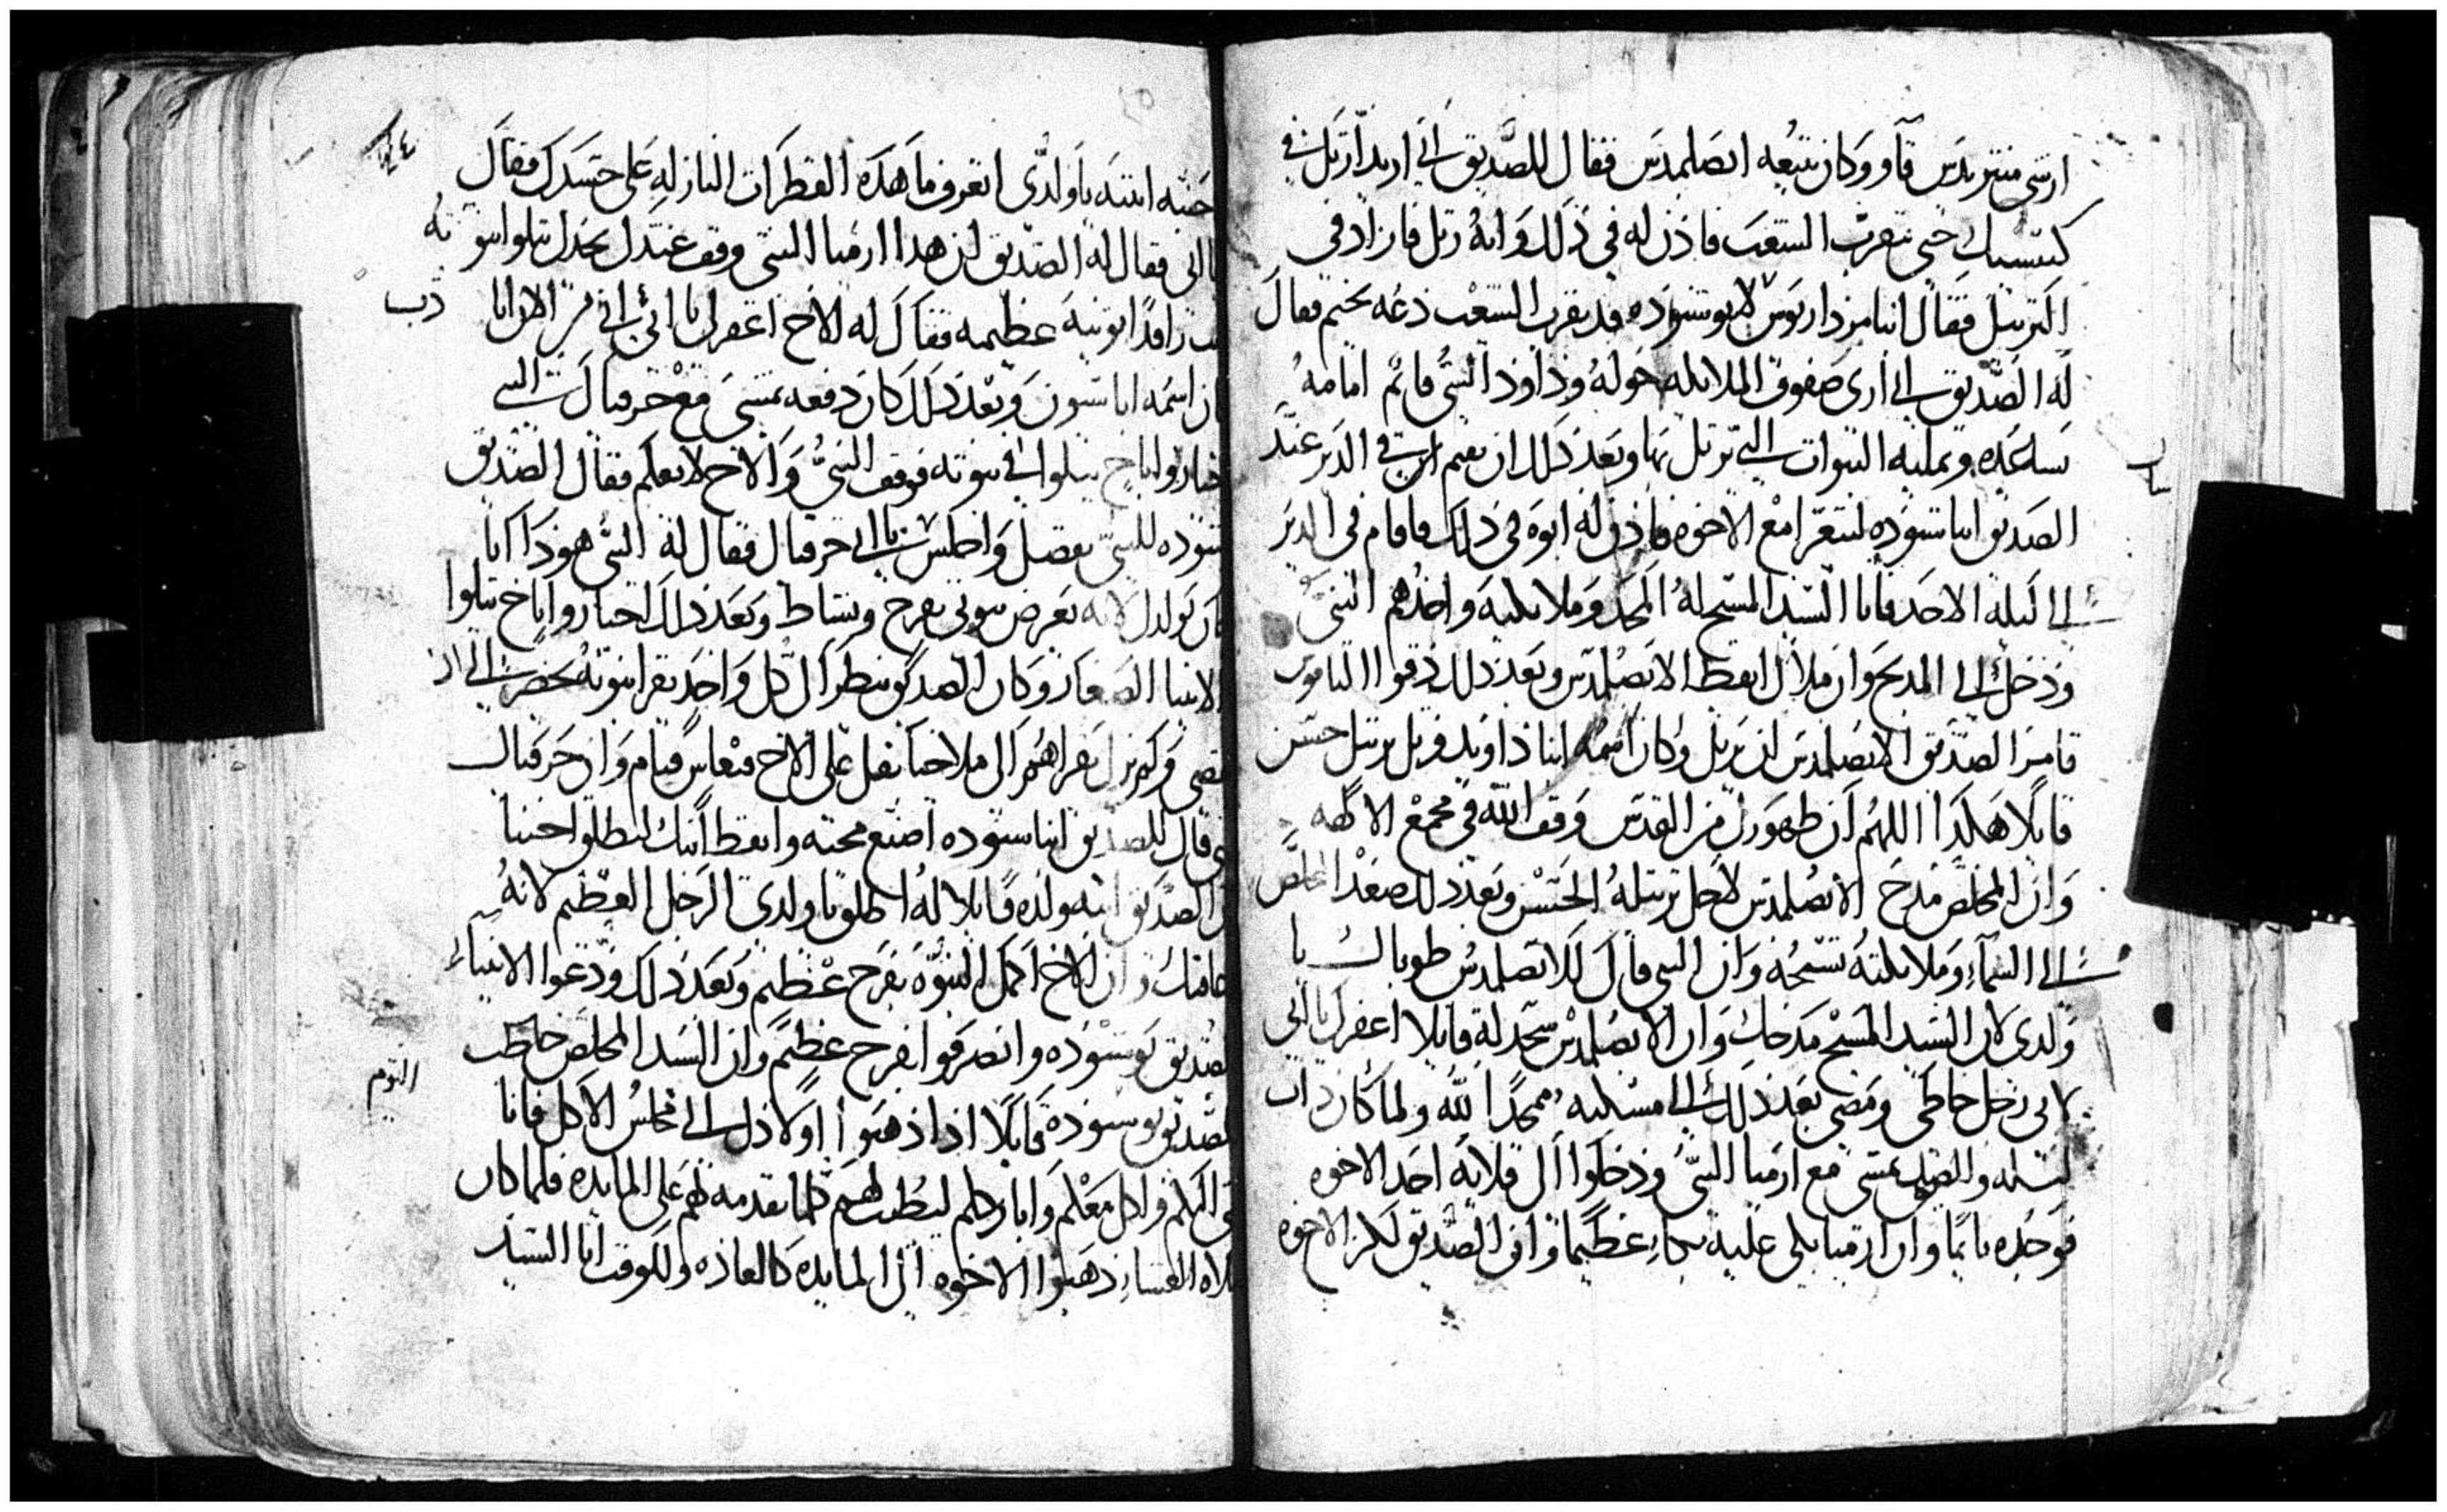 ارشى منتريدس قاو وكان يتبعه ابصلمدس فقال للصديق اني اريد ارتل في
كنيستك حتى تقرب الشعب فاذن له في ذلك وانه رتل فازاد في
الترتيل فقال انبا مرداريوس لابو شنوده قد تقرب الشعب دعه يختم فقال
له الصديق اني ارى صفوف الملايكه حوله وداود النبي قايم امامه
يساعده ويملیه النبوات التي يرتل بها وبعد ذلك ان يقيم ابن في الدير عند
الصديق انبا شنوده ليتعزا مع الاخوه فاذن له ابوه في ذلك فاقام في الدير
الى ليلة الاحد فاتا السيد المسيح له المجد وملايكته واحدهم النبي
ودخل الى المدبح وان ملاك ايقظ الابصلمدس وبعد ذلك دقوا الناقوس
فامر الصديق الابصلمدس ان يرتل وكان اسمه انبا داويد فرتل برتيل حسن
قايلا هكذا اللهم ان ظهورك من القدس وقف الله في مجمع الالهه
وان المخلص مدح الابصلمدس لاجل ترتيله الحسن وبعد ذلك صعد المخلص
الى السماء وملايكته تسبحه وان النبي قال للابصلمدس طوباك يا
ولدي لان السيد المسيح مدحك وان الابصلمدس سجد له قايلا اغفر لي يا ابي
لاني رجل خاطي ومضى بعد ذلك الى مسكنه ممجدا لله ولما كان ذات
ليله والصديق يمشي مع ارميا النبي ودخلوا الى قلاية احد الاخوه
فوجده نايما وان ارميا بكي عليه بكاء عظيما وان الصديق لكز الاخوه
جنبه انتبه يا ولدى اتعرف ما هده القطرات النازله على جسدك فقال
يا ابي فقال له الصديق ان هدا ارميا النبي وقف عندك يجدك تتلوا نبوته
راقدا توبيه عظيمه فقال له الاخ اغفر لي يا ابي اني من الان ايا
ان اسمه ابا شنون وبعد ذلك كان دفعه يمشي مع حزقيال النبي
اختاروا باخ يتلوا في نبوته فوقف النبي والاخ لا يعلم فقال الصديق
شنوده للنبي تفضل واجلس يا ابي حزقيال فقال له النبي هوذا انا
يا ولدي لانه يعرض نبوتي بفرح ونشاط وبعد ذلك اجتازوا باخ يتلوا
الانبيا الصغار وكان الصديق ينظر ان كل واحد يقرا نبوته يحضر الى ان
يمضي ولم يزل يقراهم الى ملاخيا تقل على الاخ نعاس فنام وان حزقيال
قال للصديق انبا شنوده اصنع محبه وايقظ ابنك ليطلق اخينا
الصديق انبه ولده قايلا له اطلق يا ولدي الرجل العظيم لانه
وان الاخ اكمل النبوه بفرح عظيم وبعد ذلك ودعوا الانبياء
الصديق بوشنوده وانصرفوا بفرح عظيم وان السيد المخلص خاطب
الصديق بوشنوده قايلا اذا ذهبوا اولادك الى مجلس الاكل فانا
اتي اليكم واكل معكم وابارككم ليطيب لهم كلما تقدمه لهم على المايده فلما كان
العشاء ذهبوا الاخوه الى المايده كالعاده وللوقت اتا السيد
اليوم